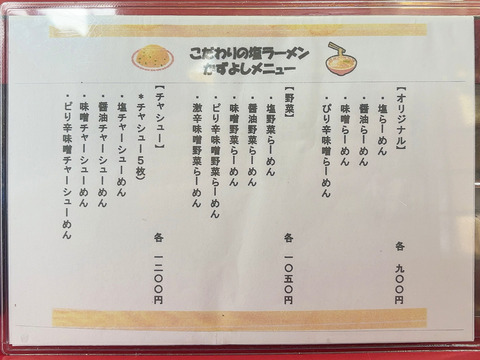 こだわりの塩ラーメン
かずよしメニュー
【オリジナル】 各 九〇〇円
・塩らーめん
・醤油らーめん
・味噌らーめん
・ぴり辛味噌らーめん
【野菜】 各 一〇五〇円
・塩野菜らーめん
・醤油野菜らーめん
・味噌野菜らーめん
・ピリ辛味噌野菜らーめん
・激辛味噌野菜らーめん
【チャシュー】 各 一二〇〇円
*チャシュー5枚)
・塩チャーシューめん
・醤油チャーシューめん
・味噌チャーシューめん
・ピリ辛味噌チャーシューめん